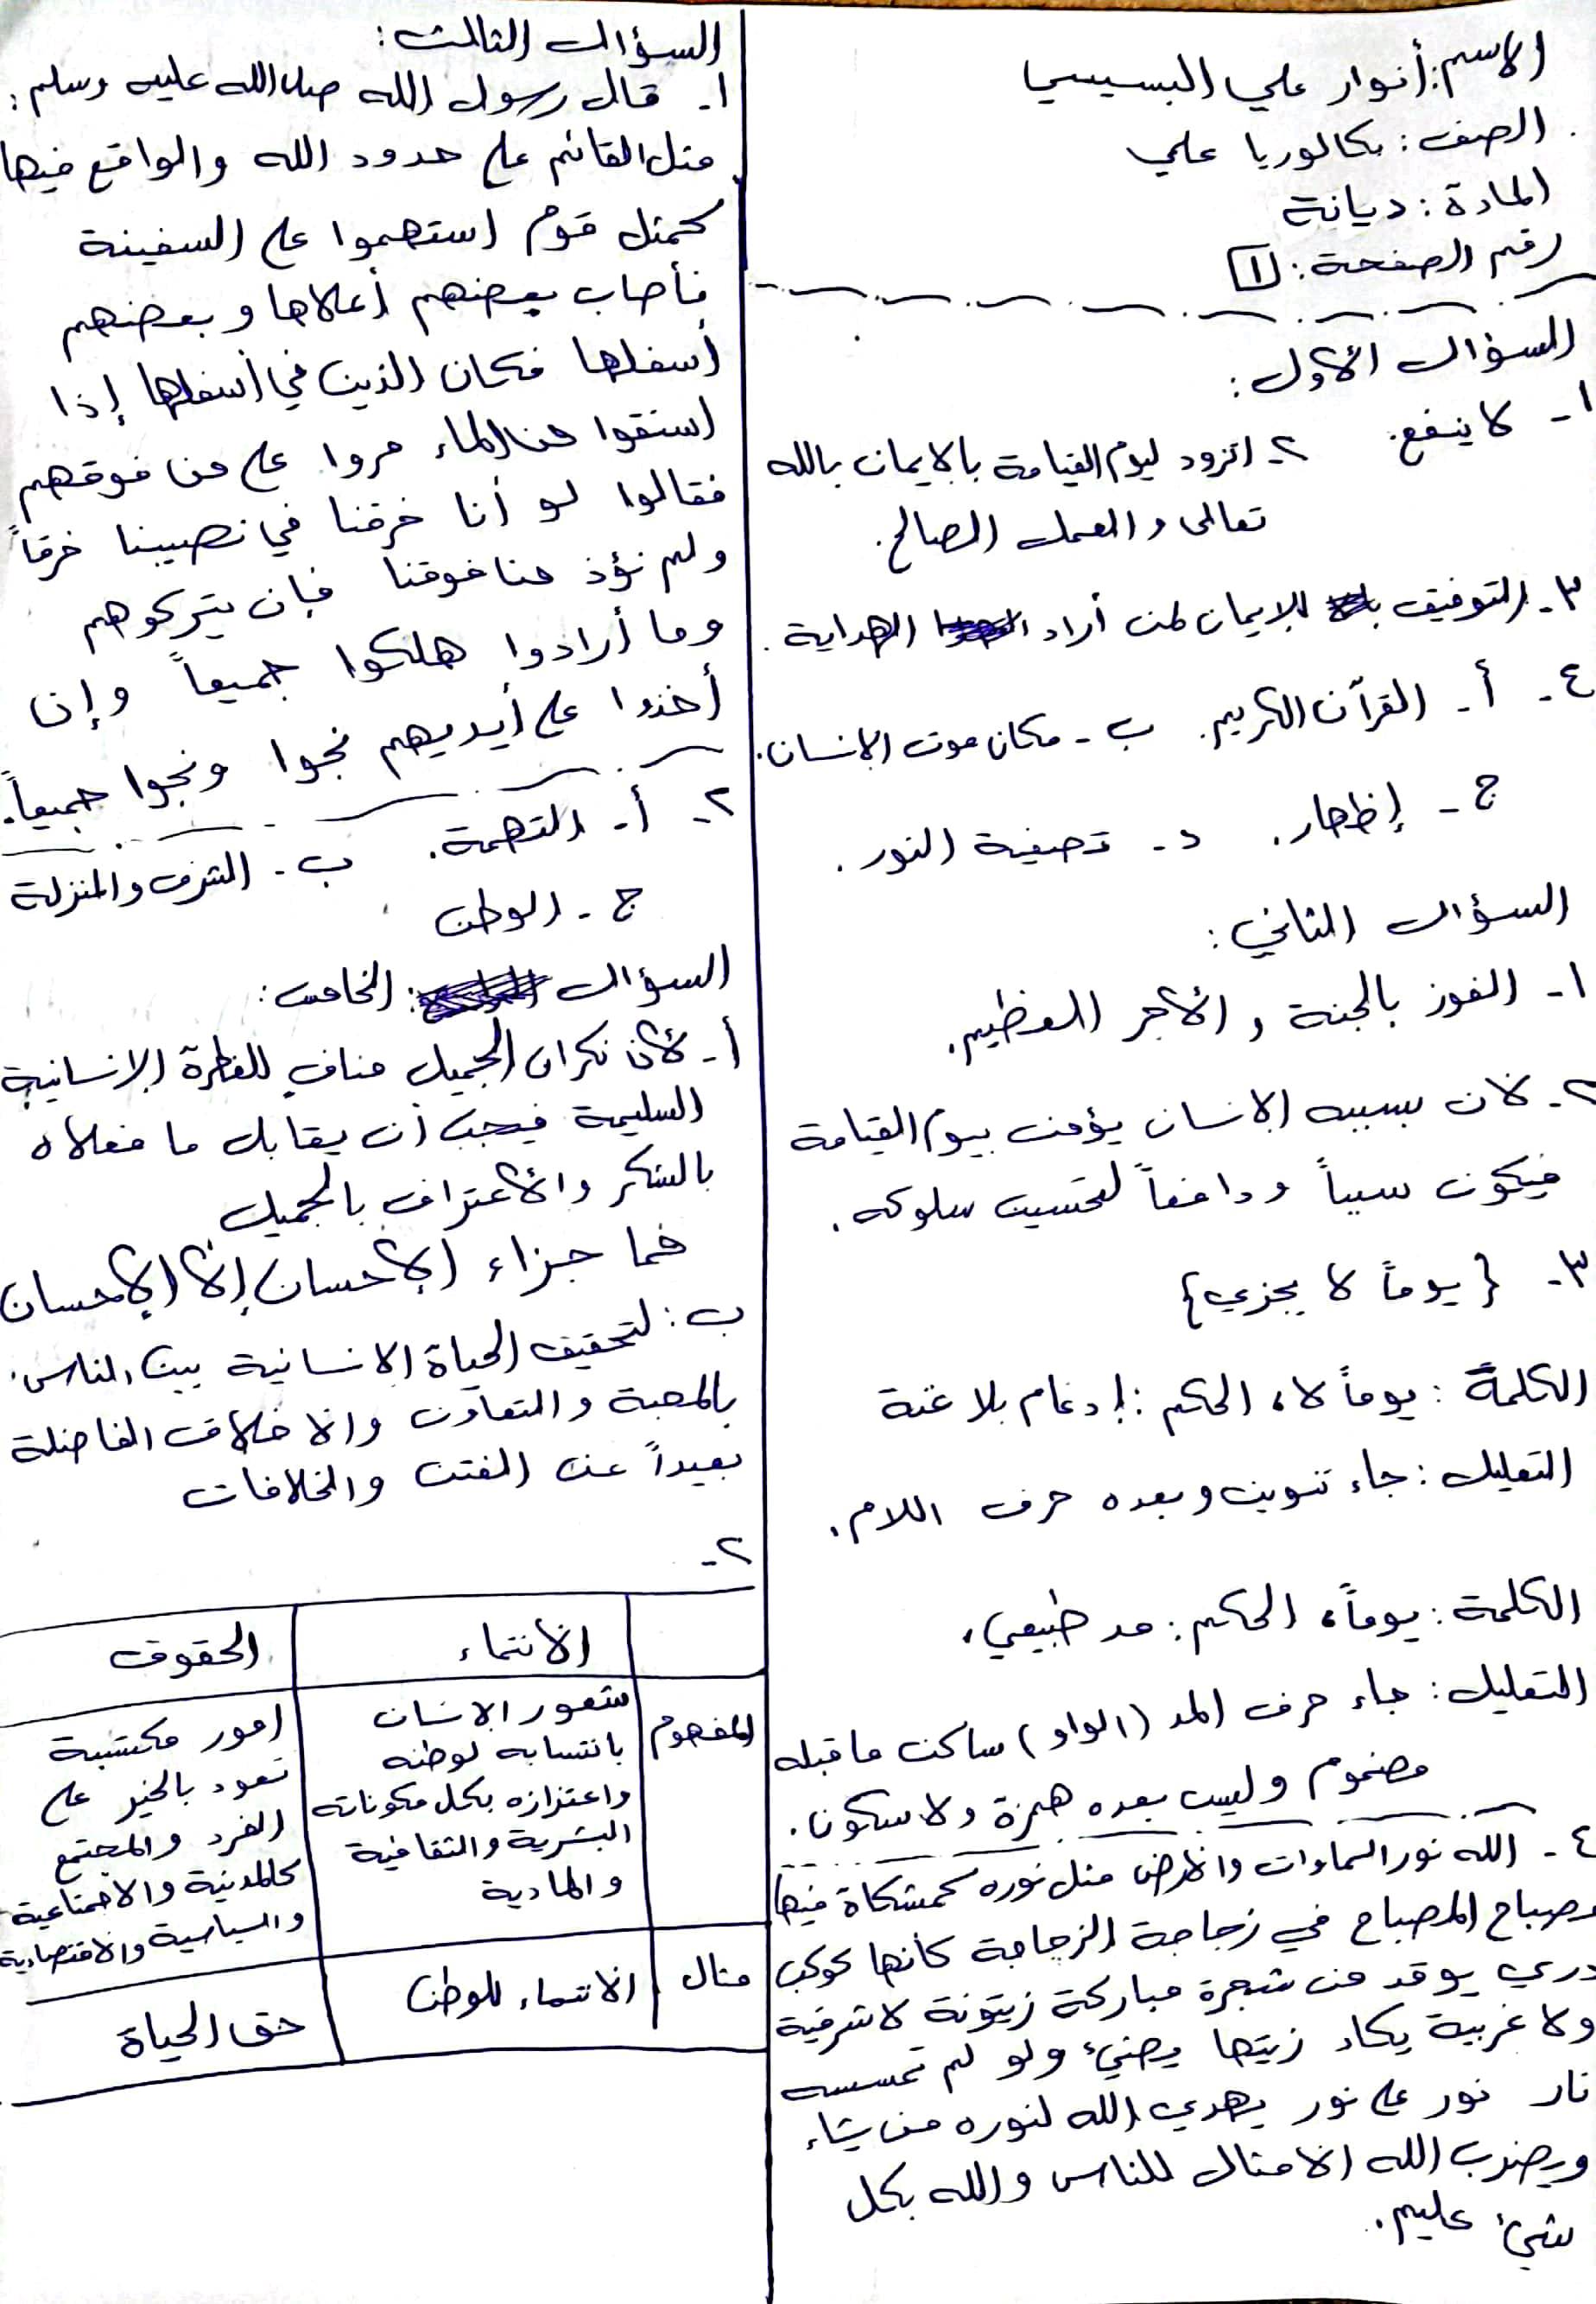 الاسم: أنوار علي البسيسي
الصف: بكالوريا علمي
المادة: ديانة
رقم الصفحة: ١
السؤال الأول:
١- لا ينفع. ٢- اتزود ليوم القيامة بالايمان بالله
تعالى والعمل الصالح.
٣- التوفيق للإيمان لمن أراد الهداية.
٤- أ- القرآن الكريم. ب- مكان موت الانسان.
ج- إظهار. د- تصفية النور.
السؤال الثاني:
١- الفوز بالجنة والأجر العظيم.
٢- لأن بسببه الإنسان يؤمن بيوم القيامة
فيكون سبباً ودافعاً لتحسين سلوكه.
٣- {يوماً لا يجزي}
الكلمة: يوماً لا، الحكم: إدغام بلا غنة
التعليل: جاء تنوين وبعده حرف اللام.
الكلمة: يوماً، الحكم: مد طبيعي،
التعليل: جاء حرف المد (الواو) ساكن ما قبله
مضموم وليس بعده همزة ولا سكون.
٤- الله نور السماوات والارض مثل نوره كمشكاة فيها
مصباح المصباح في زجاجة الزجاجة كأنها كوكب
دري يوقد من شجرة مباركة زيتونة لا شرقية
ولا غربية يكاد زيتها يضيء ولو لم تمسسه
نار نور على نور يهدي الله لنوره من يشاء
ويضرب الله الامثال للناس والله بكل
شيء عليم.
السؤال الثالث:
١- قال رسول الله صلى الله عليه وسلم:
مثل القائم على حدود الله والواقع فيها
كمثل قوم استهموا على السفينة
فأصاب بعضهم أعلاها وبعضهم
أسفلها فكان الذين في أسفلها إذا
استقوا من الماء مروا على من فوقهم
فقالوا لو أنا خرقنا في نصيبنا خرقاً
ولم نؤذ من فوقنا فإن يتركوهم
وما أرادوا هلكوا جميعاً وإن
أخذوا على أيديهم نجوا ونجوا جميعاً.
٢- أ- التهمة. ب- الشرف والمنزلة
ج- الوطن
السؤال الخامس:
أ- لأن نكران الجميل منافٍ للفطرة الإنسانية
السليمة فيجب أن يقابل ما فعلاه
بالشكر والأعتراف بالجميل
فما جزاء الإحسان إلا الإحسان
ب: لتحقيق الحياة الانسانية بين الناس.
بالمحبة والتعاون والاخلاق الفاضلة
بعيداً عن الفتن والخلافات
٢-
الانتماء الحقوق
المفهوم
شعور الانسان
بانتسابه لوطنه
واعتزازه بكل مكوناته
البشرية والثقافية
والمادية
امور مكتسبة
تعود بالخير على
الفرد والمجتمع
كالمدنية والاجتماعية
والسياسية والاقتصادية
مثال الانتماء للوطن حق الحياة